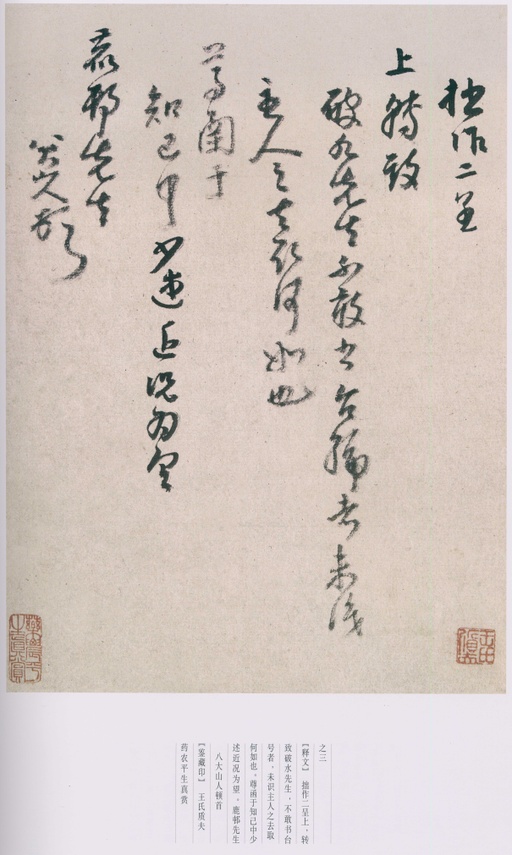 拙作二呈
上轉致
破水先生不敢书台號者未識
主人之去取何如也
尊函于
知己中少述近况为望
鹿邨先生
八大山人頓首
之三
【释文】 拙作二呈上,转
致破水先生,不敢书台
号者,未识主人之去取
何如也,尊函于知己中少
述近况为望。鹿邨先生
八大山人顿首
【鉴藏印】 王氏质夫
药农平生真赏